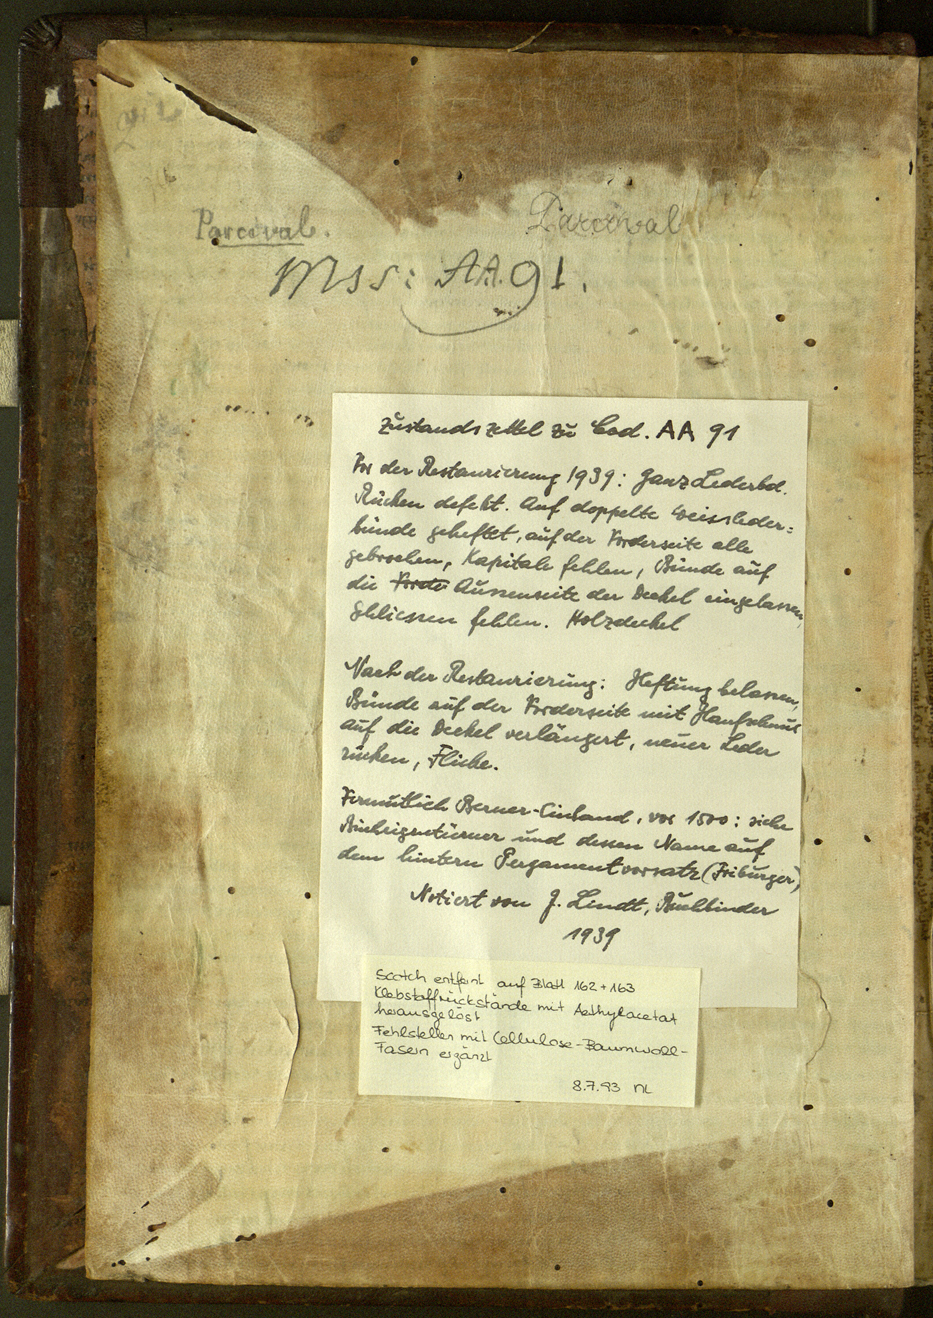 Parcival.
Parcival
Mss: AA.91.
Zustandszettel zu Cod. AA 91
Vor der Restaurierung 1939: Ganz Lederbd.
Rücken defekt. Auf doppelte Weissleder=
bünde geheftet, auf der Vorderseite alle
gebrochen, Kapitale fehlen, Bünde auf
die Vorde Aussenseite der Deckel eingelassen,
Schliessen fehlen. Holzdeckel
Nach der Restaurierung: Heftung belassen,
Bünde auf der Vorderseite mit Hanfschnur
auf die Deckel verlängert, neuer Leder
rücken, Flicke.
Vermutlich Berner-Einband, vor 1500: siehe
und dessen Name auf
dem hintern Pergamentvorsatz (Friburger)
Notiert von J. Lindt, Buchbinder
1939
Scotch entfernt auf Blatt 162+163
Klebstoffrückstände mit Aethylacetat
herausgelöst
Fehlstellen mit Cellulose-Baumwoll-
Fasern ergänzt
8.7.93 NL